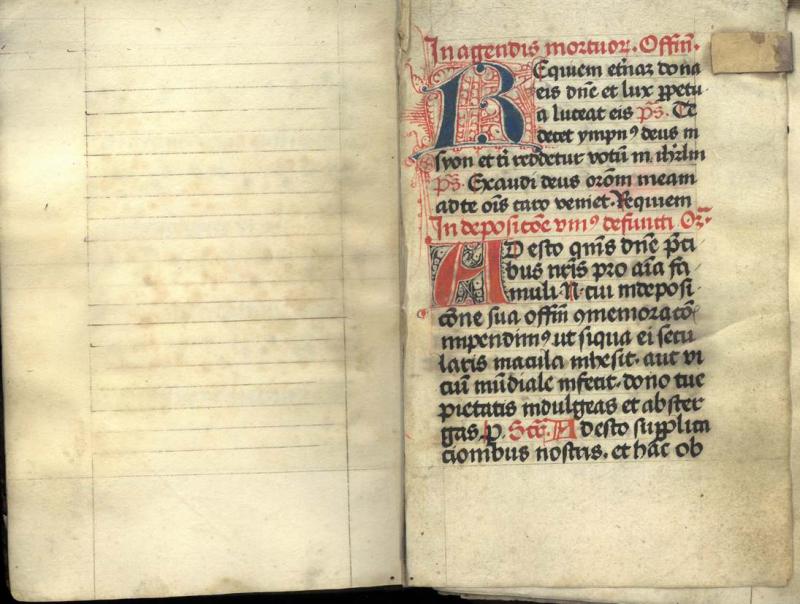 In agendis mortuoꝝ. Offiñ.
REquiem et̃naꝫ dona
eis dñe et lux ꝑpetu
a luceat eis p̃s. Te
decet ympnꝰ deus in
syon et t̃ reddetur votũ in ih̃rlm
p̃s. Exaudi deus orõm meam
ad te om̃s caro veniet. Requiem
In deposicõe vniꝰ defuncti Or̃.
ADesto qm̃s dñe p̃ci
bus nr̃is pro aĩa fa
muli .N. cui in deposi
cõne sua offiñ ꝯmemoracõ
inpendimꝰ ut siqua ei secu
laris macula inhesit. aut vi
cium mũdiale infecit. dono tue
pietatis indulgeas et abster
gas. p. Scr̃. Adesto supplica
cionibus nostris. et hãc ob